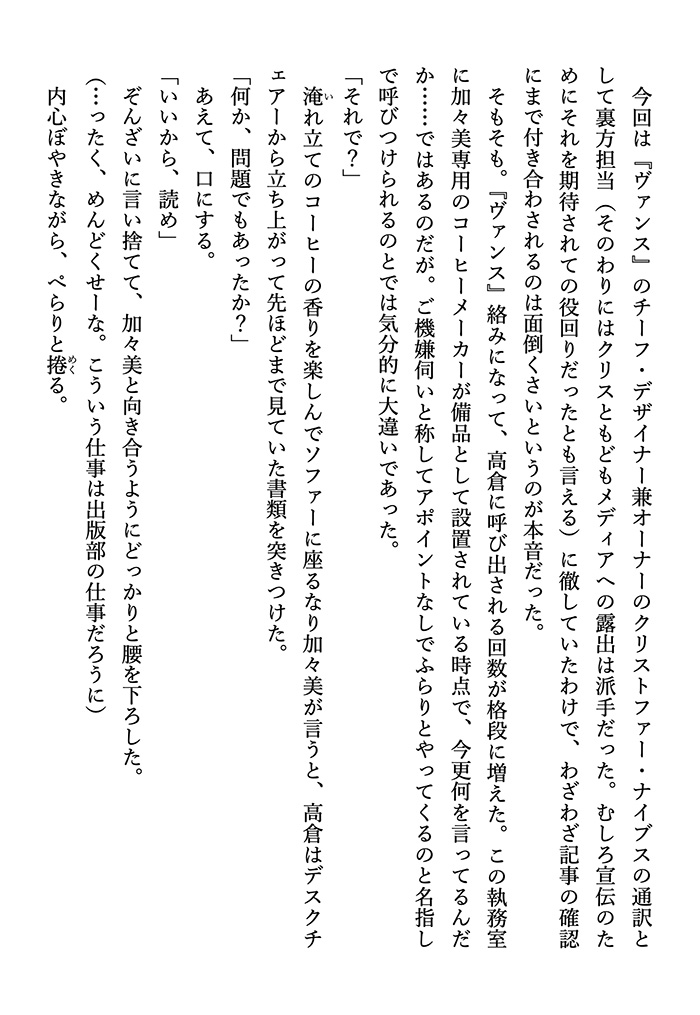 今回は『ヴァンス』のチーフ・デザイナー兼オーナーのクリストファー・ナイブスの通訳と
して裏方担当（そのわりにはクリスともどもメディアへの露出は派手だった。むしろ宣伝のた
めにそれを期待されての役回りだったとも言える）に徹していたわけで、わざわざ記事の確認
にまで付き合わされるのは面倒くさいというのが本音だった。
　そもそも。『ヴァンス』絡みになって、高倉に呼び出される回数が格段に増えた。この執務室
に加々美専用のコーヒーメーカーが備品として設置されている時点で、今更何を言ってるんだ
か……ではあるのだが。ご機嫌伺いと称してアポイントなしでふらりとやってくるのと名指し
で呼びつけられるのとでは気分的に大違いであった。
「それで？」
　淹れ立てのコーヒーの香りを楽しんでソファーに座るなり加々美が言うと、高倉はデスクチ
ェアーから立ち上がって先ほどまで見ていた書類を突きつけた。
「何か、問題でもあったか？」
　あえて、口にする。
「いいから、読め」
　ぞんざいに言い捨てて、加々美と向き合うようにどっかりと腰を下ろした。
（…ったく、めんどくせーな。こういう仕事は出版部の仕事だろうに）
　内心ぼやきながら、ぺらりと捲る。